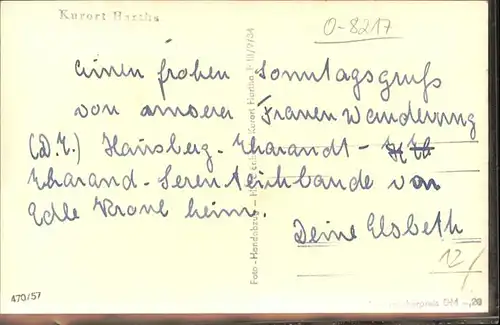 Kurort Hartha
O-8217
einen frohen Sonntagsgruß
von unserer Frauen Wanderung
(D.T.) Hainsberg - Tharandt -
Tharand - Serenteichbaude von
Edle Krone heim.
Deine Elsbeth
12/
Foto - Handabzug - Kurort Hartha III/9/04
470/57